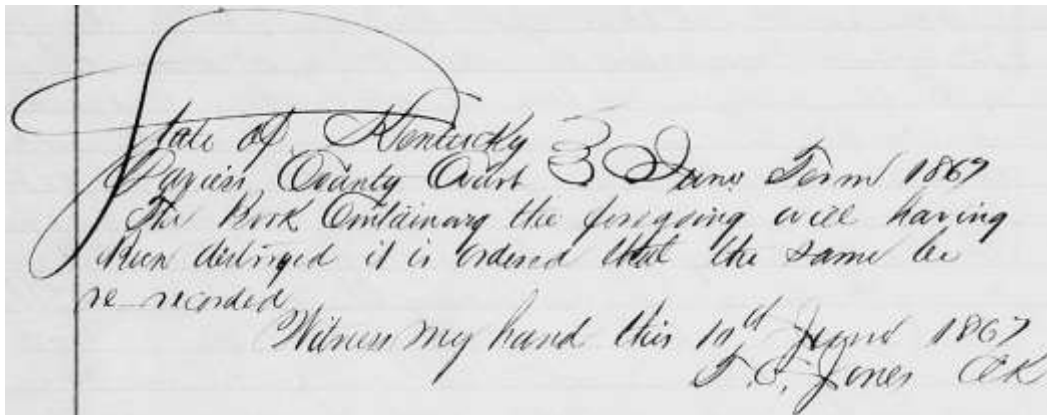 State of Kentucky
Daviess County Court } June Term 1867
The Book Containing the foregoing will having
been distroyed it is ordered that the same be
re-recorded
Witness my hand this 10th June 1867
T. C. Jones Clk